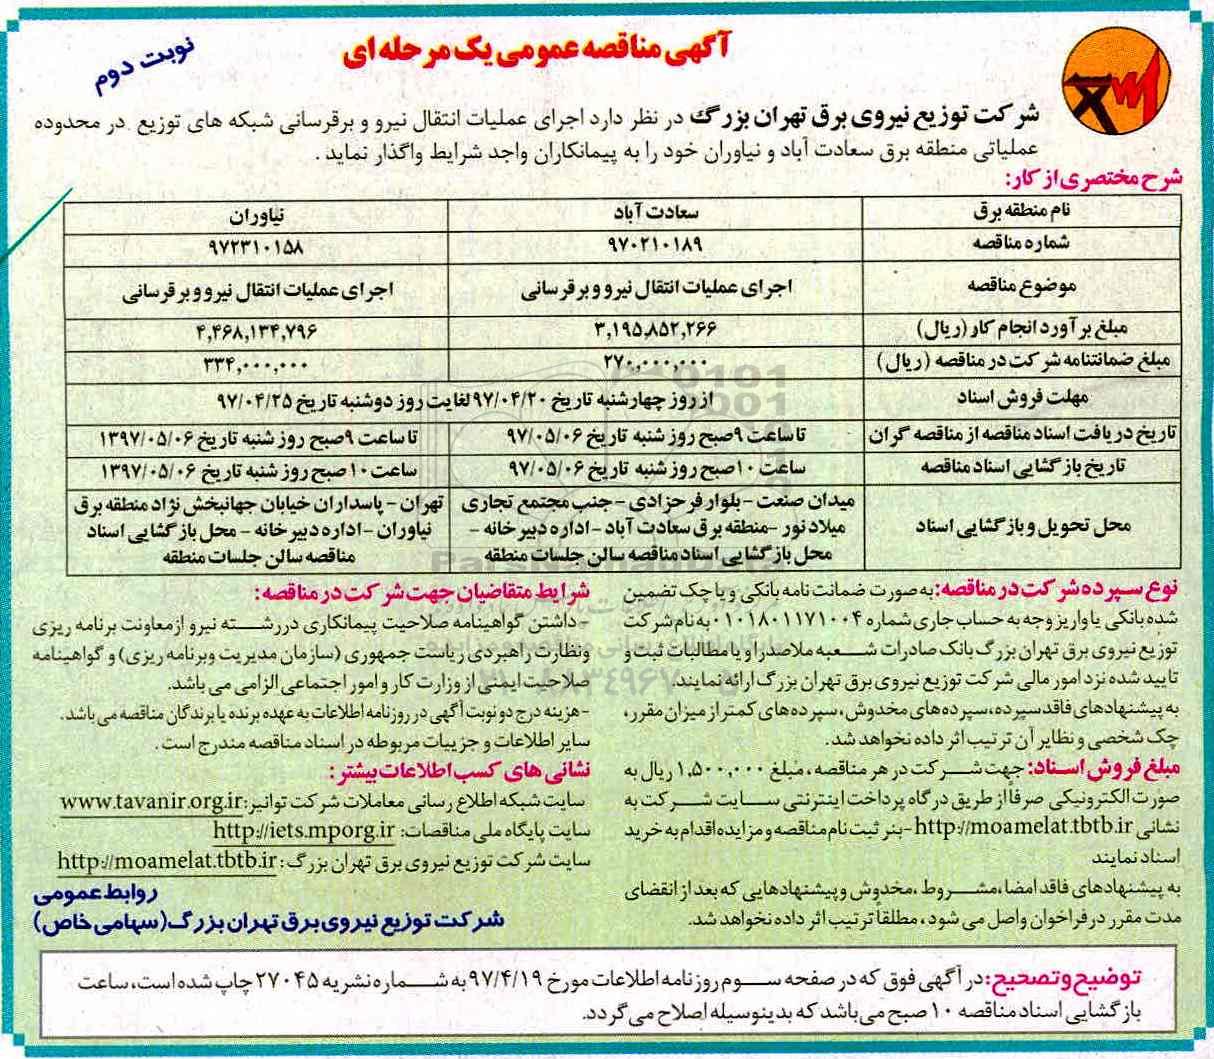 آگهی مناقصه عمومی یک مرحله ای
نوبت دوم
شرکت توزیع نیروی برق تهران بزرگ در نظر دارد اجرای عملیات انتقال نیرو و برقرسانی شبکه های توزیع در محدوده
عملیاتی منطقه برق سعادت آباد و نیاوران خود را به پیمانکاران واجد شرایط واگذار نماید .
شرح مختصری از کار:
نام منطقه برق سعادت آباد نیاوران
شماره مناقصه ۹۷۰۲۱۰۱۸۹ ۹۷۲۳۱۰۱۵۸
موضوع مناقصه اجرای عملیات انتقال نیرو و برقرسانی اجرای عملیات انتقال نیرو و برقرسانی
مبلغ برآورد انجام کار (ریال) ۳,۱۹۵,۸۵۲,۲۶۶ ۴,۴۶۸,۱۳۴,۷۹۶
مبلغ ضمانتنامه شرکت در مناقصه (ریال) ۲۷۰,۰۰۰,۰۰۰ ۳۳۴,۰۰۰,۰۰۰
مهلت فروش اسناد از روز چهارشنبه تاریخ ۹۷/۰۴/۲۰ لغایت روز دوشنبه تاریخ ۹۷/۰۴/۲۵
تاریخ دریافت اسناد مناقصه از مناقصه گران تا ساعت ۹صبح روز شنبه تاریخ ۹۷/۰۵/۰۶ تا ساعت ۹صبح روز شنبه تاریخ ۱۳۹۷/۰۵/۰۶
تاریخ بازگشایی اسناد مناقصه ساعت ۱۰صبح روز شنبه تاریخ ۹۷/۰۵/۰۶ ساعت ۱۰صبح روز شنبه تاریخ ۱۳۹۷/۰۵/۰۶
محل تحویل و بازگشایی اسناد
میدان صنعت - بلوار فرحزادی - جنب مجتمع تجاری
میلاد نور -منطقه برق سعادت آباد - اداره دبیرخانه -
محل بازگشایی اسناد مناقصه سالن جلسات منطقه
تهران - پاسداران خیابان جهانبخش نژاد منطقه برق
نیاوران - اداره دبیرخانه - محل بازگشایی اسناد
مناقصه سالن جلسات منطقه
نوع سپرده شرکت در مناقصه: به صورت ضمانت نامه بانکی و یا چک تضمین
شده بانکی یا واریز وجه به حساب جاری شماره ۰۱۰۱۸۰۱۱۷۱۰۰۴ به نام شرکت
توزیع نیروی برق تهران بزرگ بانک صادرات شعبه ملاصدرا و یا مطالبات ثبت و
تایید شده نزد امور مالی شرکت توزیع نیروی برق تهران بزرگ ارائه نمایند.
به پیشنهادهای فاقد سپرده، سپرده‌های مخدوش، سپرده‌های کمتر از میزان مقرر،
چک شخصی و نظایر آن ترتیب اثر داده نخواهد شد.
مبلغ فروش اسناد: جهت شرکت در هر مناقصه ، مبلغ ۱,۵۰۰,۰۰۰ ریال به
صورت الکترونیکی صرفا از طریق درگاه پرداخت اینترنتی سایت شرکت به
نشانی http://moamelat.tbtb.ir -بنر ثبت نام مناقصه و مزایده اقدام به خرید
اسناد نمایند
به پیشنهادهای فاقد امضا ،مشروط ،مخدوش و پیشنهادهایی که بعد از انقضای
مدت مقرر در فراخوان واصل می شود ، مطلقاً ترتیب اثر داده نخواهد شد.
شرایط متقاضیان جهت شرکت در مناقصه:
-داشتن گواهینامه صلاحیت پیمانکاری در رشته نیرو از معاونت برنامه ریزی
ونظارت راهبردی ریاست جمهوری (سازمان مدیریت وبرنامه ریزی) و گواهینامه
صلاحیت ایمنی از وزارت کار و امور اجتماعی الزامی می باشد.
-هزینه درج دو نوبت آگهی در روزنامه اطلاعات به عهده برنده یا برندگان مناقصه می باشد.
سایر اطلاعات و جزییات مربوطه در اسناد مناقصه مندرج است .
نشانی های کسب اطلاعات بیشتر:
سایت شبکه اطلاع رسانی معاملات شرکت توانیر: www.tavanir.org.ir
سایت پایگاه ملی مناقصات: http://iets.mporg.ir
سایت شرکت توزیع نیروی برق تهران بزرگ: http://moamelat.tbtb.ir
روابط عمومی
شرکت توزیع نیروی برق تهران بزرگ (سهامی خاص)
توضیح و تصحیح: در آگهی فوق که در صفحه سوم روزنامه اطلاعات مورخ ۹۷/۴/۱۹ به شماره نشریه ۲۷۰۴۵ چاپ شده است، ساعت
بازگشایی اسناد مناقصه ۱۰ صبح می باشد که بدینوسیله اصلاح می گردد.